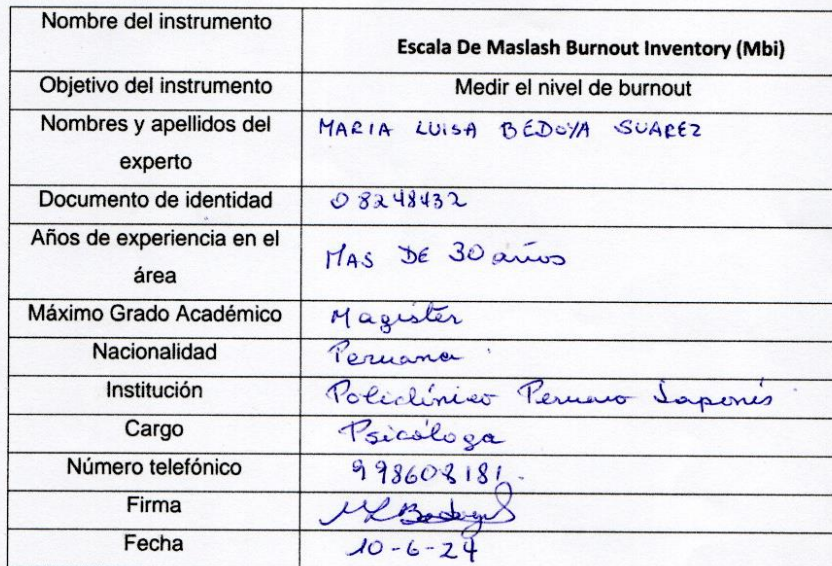 Nombre del instrumento
Escala De Maslash Burnout Inventory (Mbi)
Objetivo del instrumento Medir el nivel de burnout
Nombres y apellidos del experto MARIA LUISA BEDOYA SUAREZ
Documento de identidad 08248432
Años de experiencia en el área MAS DE 30 años
Máximo Grado Académico Magister
Nacionalidad Peruana
Institución Policlínico Peruano Japonés
Cargo Psicóloga
Número telefónico 998608181
Firma
Fecha 10-6-24